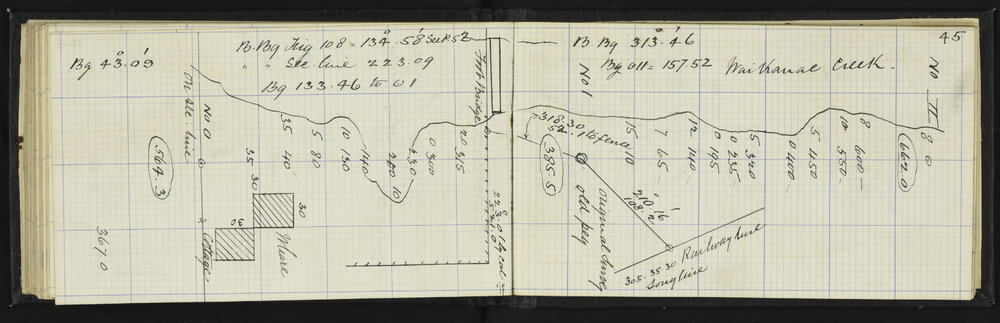 B. Bg Trig 108 = 134°.58'
Bg 43°.09'
" " Sec line 223.09
Bg 133.46 to 01
on sec. line
No 0
564.3
367.0
35
40
5
80
10
130
140
200
10
230
0
300
20
315
35
30
30
30
Whare
Cottage
Foot Bridge
45
B Bg 313°.46'
Bg 011 = 157 52
WaiKanae Creek.
No 1
No II
318.30
fence
385.5
15
10
7
65
12
140
0
195
0
235
5
340
0
400
5
450
10
550
8
600
662.0
8
0
old peg
original survey
210°.16'
108.2
305.35.30 Railway line
long line